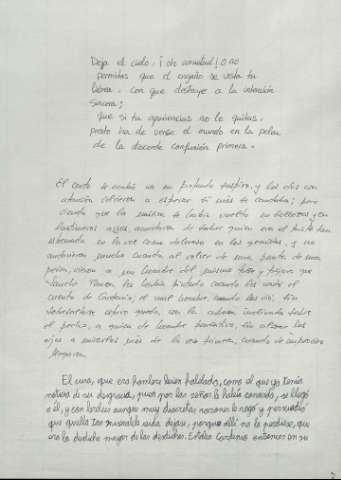 Deja el cielo, ¡oh amistad! o no
permitas que el engaño se vista tu
librea, con que destruye a la intención
sincera;
que si tus apariencias no le quitas,
presto ha de verse el mundo en la pelea
de la discorde confusión primera.
El canto se acabó con un profundo suspiro, y los dos con
atención volvieron a esperar si más se cantaba; pero
viendo que la música se había vuelto en sollozos y en
lastimeros ayes, acordaron de saber quien era el triste tan
estremado en la voz como doloroso en los gemidos, y no
anduvieron mucho cuando, al volver de una punta de una
peña, vieron a un hombre del mismo talle y figura que
Sancho Panza les había pintado cuando les contó el
cuento de Cardenio; el cual hombre, cuando los vio, sin
sobresaltarse estuvo quedo, con la cabeza inclinada sobre
el pecho, a guisa de hombre pensativo, sin alzar los
ojos a mirarlos más de la vez primera, cuando de improviso
llegaron.
El cura, que era hombre bien hablado, como el que ya tenía
noticia de su desgracia, pues por las señas le había conocido, se llegó
a él, y con breves aunque muy discretas razones le rogó y persuadió
que aquella tan miserable vida dejase, porque allí no la perdiese, que
era la desdicha mayor de las desdichas. Estaba Cardenio entonces en su